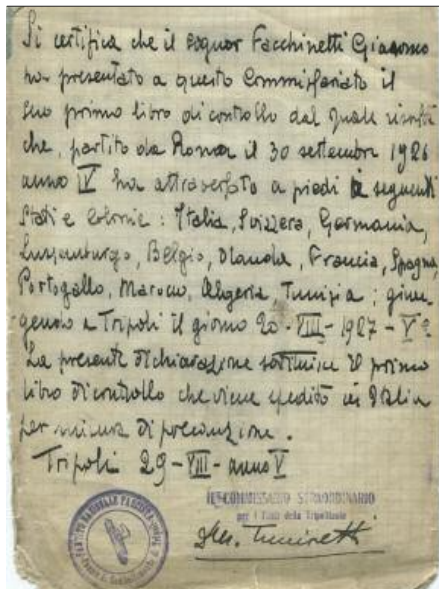 Si certifica che il signor Facchinetti Giacomo
ha presentato a questo Commissariato il
suo primo libro di controllo dal quale risulta
che, partito da Roma il 30 settembre 1926
anno IV ha attraversato a piedi i seguenti
Stati e colonie: Italia, Svizzera, Germania,
Lussemburgo, Belgio, Olanda, Francia, Spagna
Portogallo, Marocco, Algeria, Tunisia; giun-
gendo a Tripoli il giorno 20-VIII-1927-V°
La presente dichiarazione sostituisce il primo
libro di controllo che viene spedito in Italia
per misura di precauzione.
Tripoli 29-VIII-anno V
IL COMMISSARIO STRAORDINARIO
per i Fasci della Tripolitania
PARTITO NAZIONALE FASCISTA